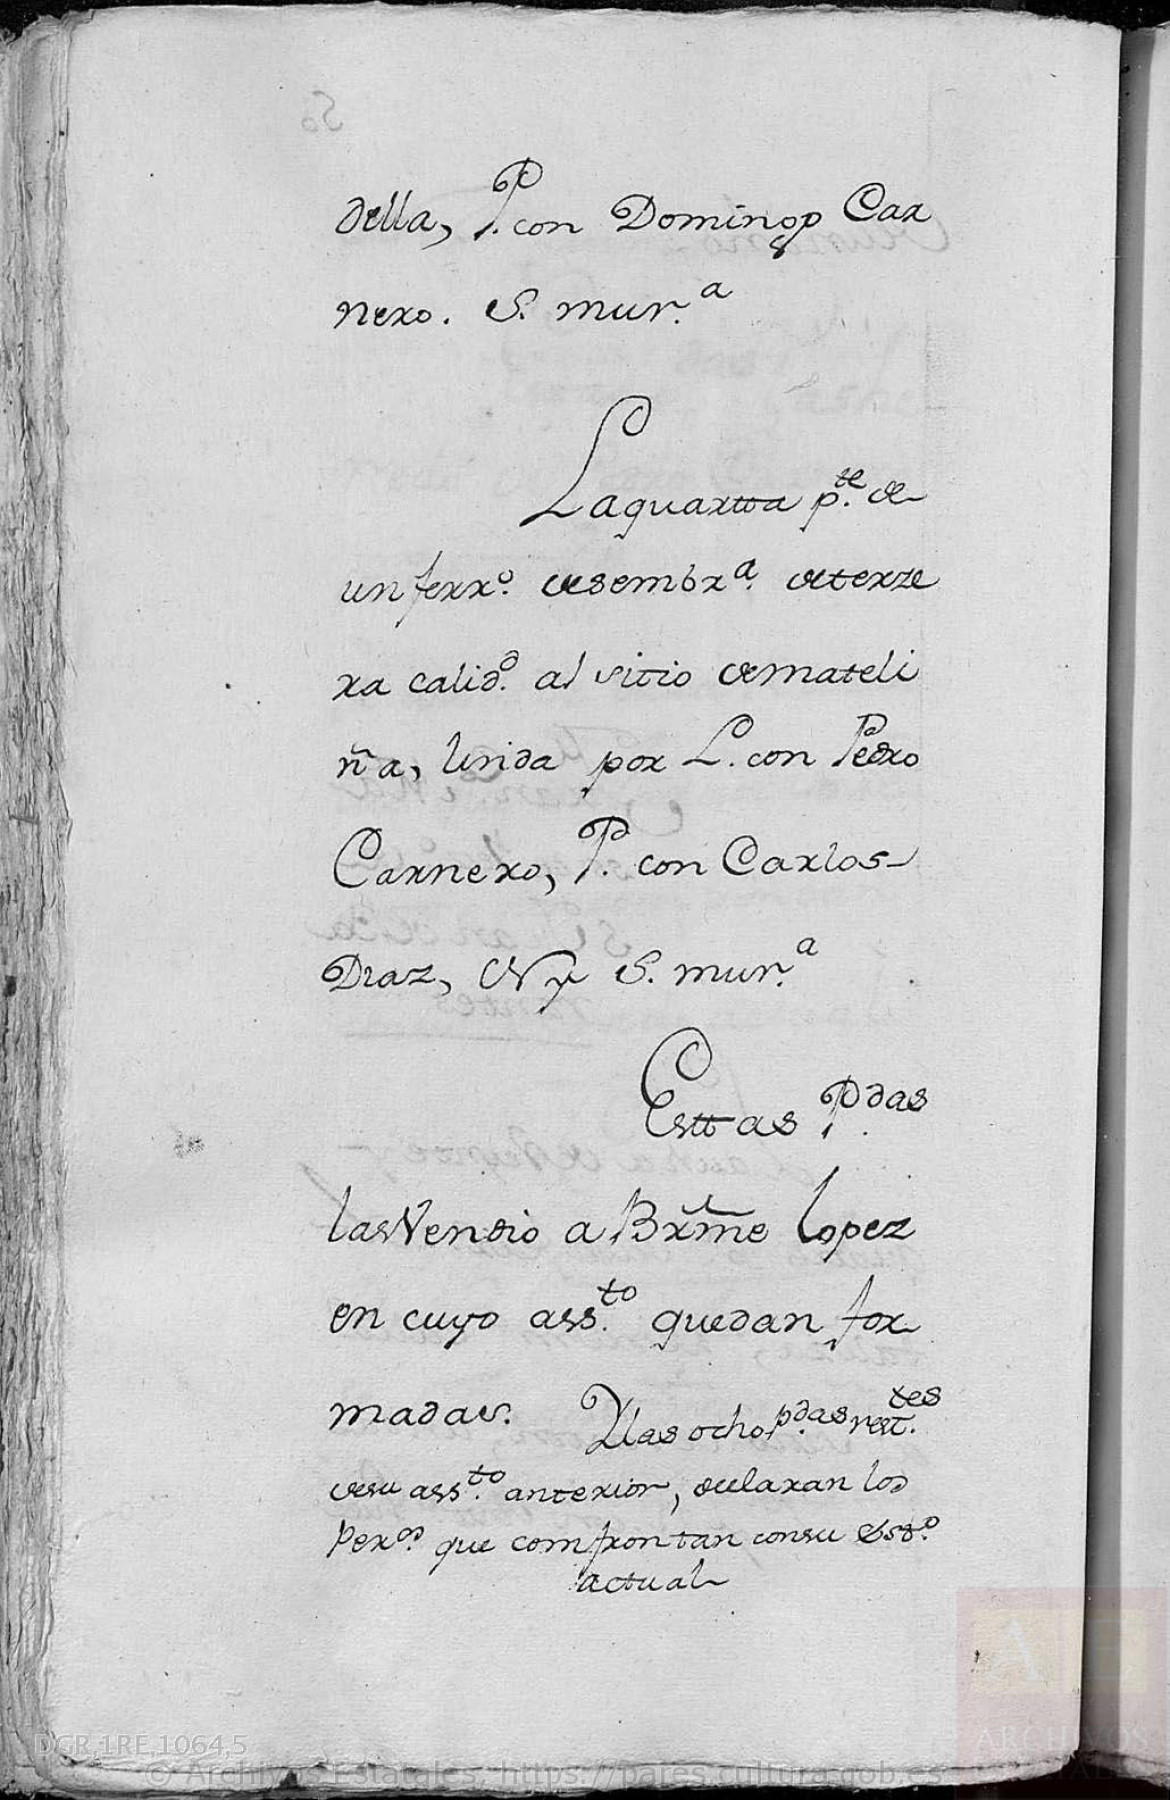 della, P. con Domingo Car
nero. S. mur.ª
La quartta p.te de
un ferr.º de sembr.ª de terze
ra calid.d al sitio de mateli
ña, linda por L. con Pedro
Carnero, P. con Carlos
Diaz, N y S. mur.ª
Esttas P.das
las Vendio a Brme Lopez
en cuyo ass.to quedan for
madas. Y las ocho p.das rest.tes
de su ass.to anterior, declaran los
Per.os que comfrontan con su ess.o
actual
DGR,1RE,1064,5
© Archivos Estatales, https://pares.cultura.gob.es
AE
ARCHIVOS